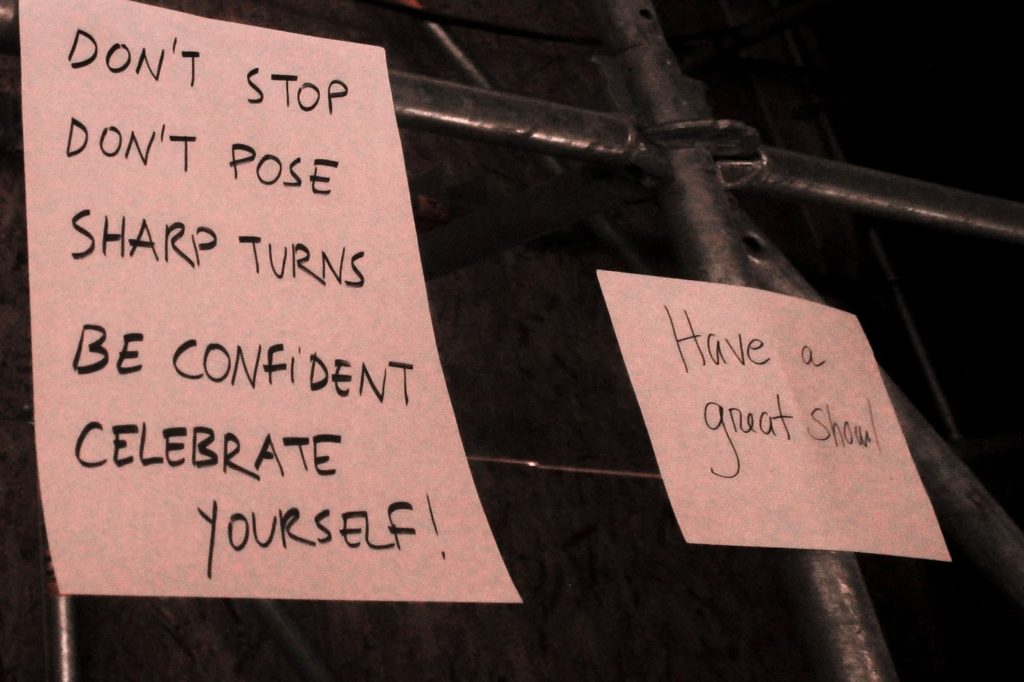 DON'T STOP
DON'T POSE
SHARP TURNS
BE CONFiDENT
CELEBRATE
YOURSELF!
Have a
great show!